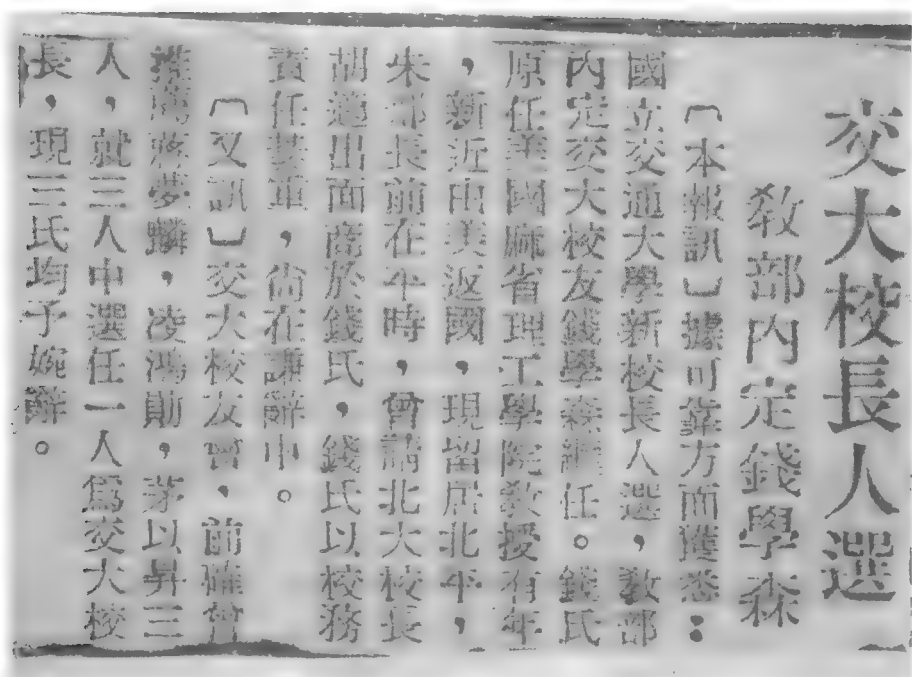 交大校長人選
教部內定錢學森
〔本報訊〕據可靠方面獲悉：
國立交通大學新校長人選，教部
內定交大校友錢學森繼任。錢氏
原任美國麻省理工學院教授有年
，新近由美返國，現留居北平，
朱部長前在平時，曾請北大校長
胡適出面商於錢氏，錢氏以校務
責任綦重，尙在謙辭中。
〔又訊〕交大校友會，前確曾
推薦蔣夢麟，凌鴻勛，茅以昇三
人，就三人中選任一人爲交大校
長，現三氏均予婉辭。